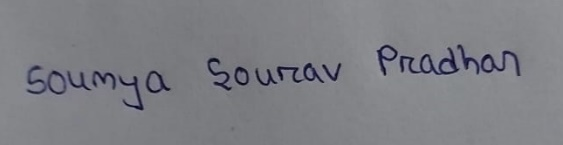 Soumya Sourav Pradhan